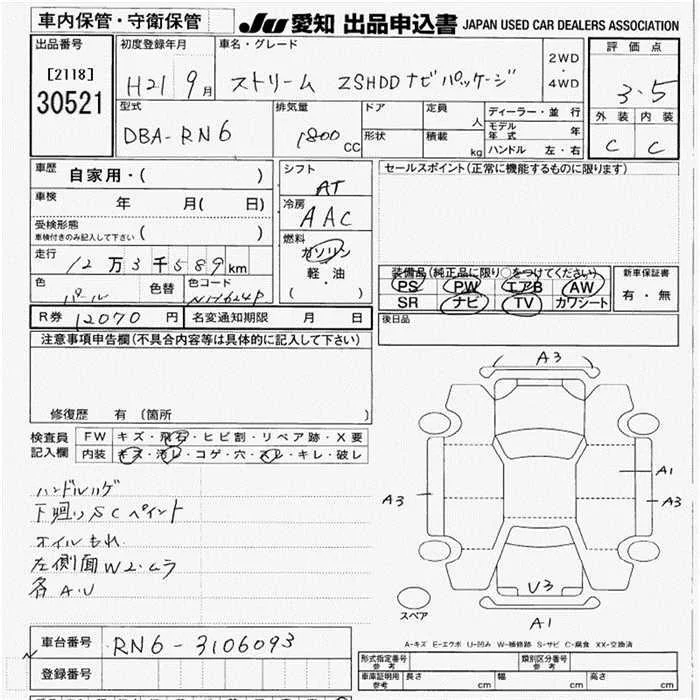 車内保管・守衛保管
JU 愛知 出品申込書 JAPAN USED CAR DEALERS ASSOCIATION
出品番号 初度登録年月 車名・グレード 2WD・4WD 評価点
[2118] H21 9月 ストリーム ZSHDDナビパッケージ 3.5
30521
型式 排気量 ドア 定員 人 ディーラー・並行 外装 内装
DBA-RN6 1800cc 形状 積載 kg モデル年式 年 C C
ハンドル 左・右
車歴 自家用・( ) シフト AT セールスポイント(正常に機能するものに限ります)
車検 年 月( 日) 冷房 AAC
受検形態 車検付きのみ記入して下さい ( )
燃料 ガソリン 軽・油 ( )
走行 12万3千589km
装備品(純正品に限り○をつけてください) 新車保証書
PS PW エアB AW 有・無
SR ナビ TV カワシート
色 パール 色替 色コード NH624P
R券 12070円 名変通知期限 月 日 後日品
注意事項申告欄(不具合内容等は具体的に記入して下さい)
修復歴 有 (箇所 )
検査員記入欄 FW キズ・飛石・ヒビ割・リペア跡・X要
内装 キズ・汚レ・コゲ・穴・スレ・キレ・破レ
ハンドルハゲ
下廻りSCペイント
オイルもれ
左側面W2・ムラ
各A・U
A3
A1
A3
A3
U3
A1
スペア
A-キズ E-エクボ U-凹み W-補修跡 S-サビ C-腐食 XX-交換済
車台番号 RN6-3106093
登録番号
形式指定番号 参考 類別区分番号 参考
車庫証明用 参考 長さ cm 幅 cm 高さ cm